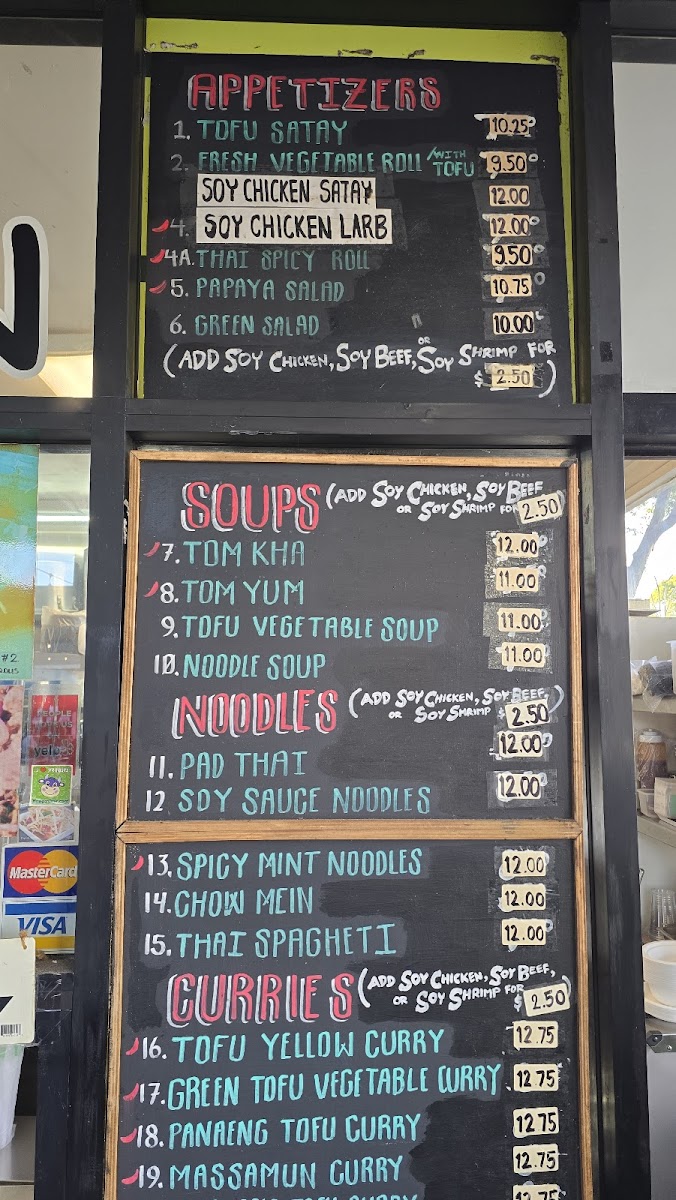 APPETIZERS
1. TOFU SATAY 10.25
2. FRESH VEGETABLE ROLL /WITH TOFU 9.50
SOY CHICKEN SATAY 12.00
4. SOY CHICKEN LARB 12.00
4A. THAI SPICY ROLL 9.50
5. PAPAYA SALAD 10.75
6. GREEN SALAD 10.00
(ADD SOY CHICKEN, SOY BEEF, OR SOY SHRIMP FOR
$ 2.50)
SOUPS (ADD SOY CHICKEN, SOY BEEF
OR SOY SHRIMP FOR 2.50)
7. TOM KHA 12.00
8. TOM YUM 11.00
9. TOFU VEGETABLE SOUP 11.00
10. NOODLE SOUP 11.00
NOODLES (ADD SOY CHICKEN, SOY BEEF,
OR SOY SHRIMP $ 2.50)
11. PAD THAI 12.00
12. SOY SAUCE NOODLES 12.00
13. SPICY MINT NOODLES 12.00
14. CHOW MEIN 12.00
15. THAI SPAGHETI 12.00
CURRIES (ADD SOY CHICKEN, SOY BEEF,
OR SOY SHRIMP FOR $ 2.50)
16. TOFU YELLOW CURRY 12.75
17. GREEN TOFU VEGETABLE CURRY 12.75
18. PANAENG TOFU CURRY 12.75
19. MASSAMUN CURRY 12.75
TOFU CURRY 12.75
#2
yelp
MasterCard
VISA